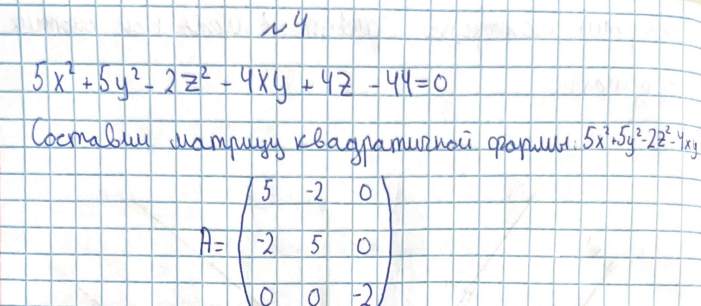 №4
5x² + 5y² - 2z² - 4xy + 4z - 44 = 0
Составим матрицу квадратичной формы: 5x²+5y²-2z²-4xy
5 -2 0
A= -2 5 0
0 0 -2